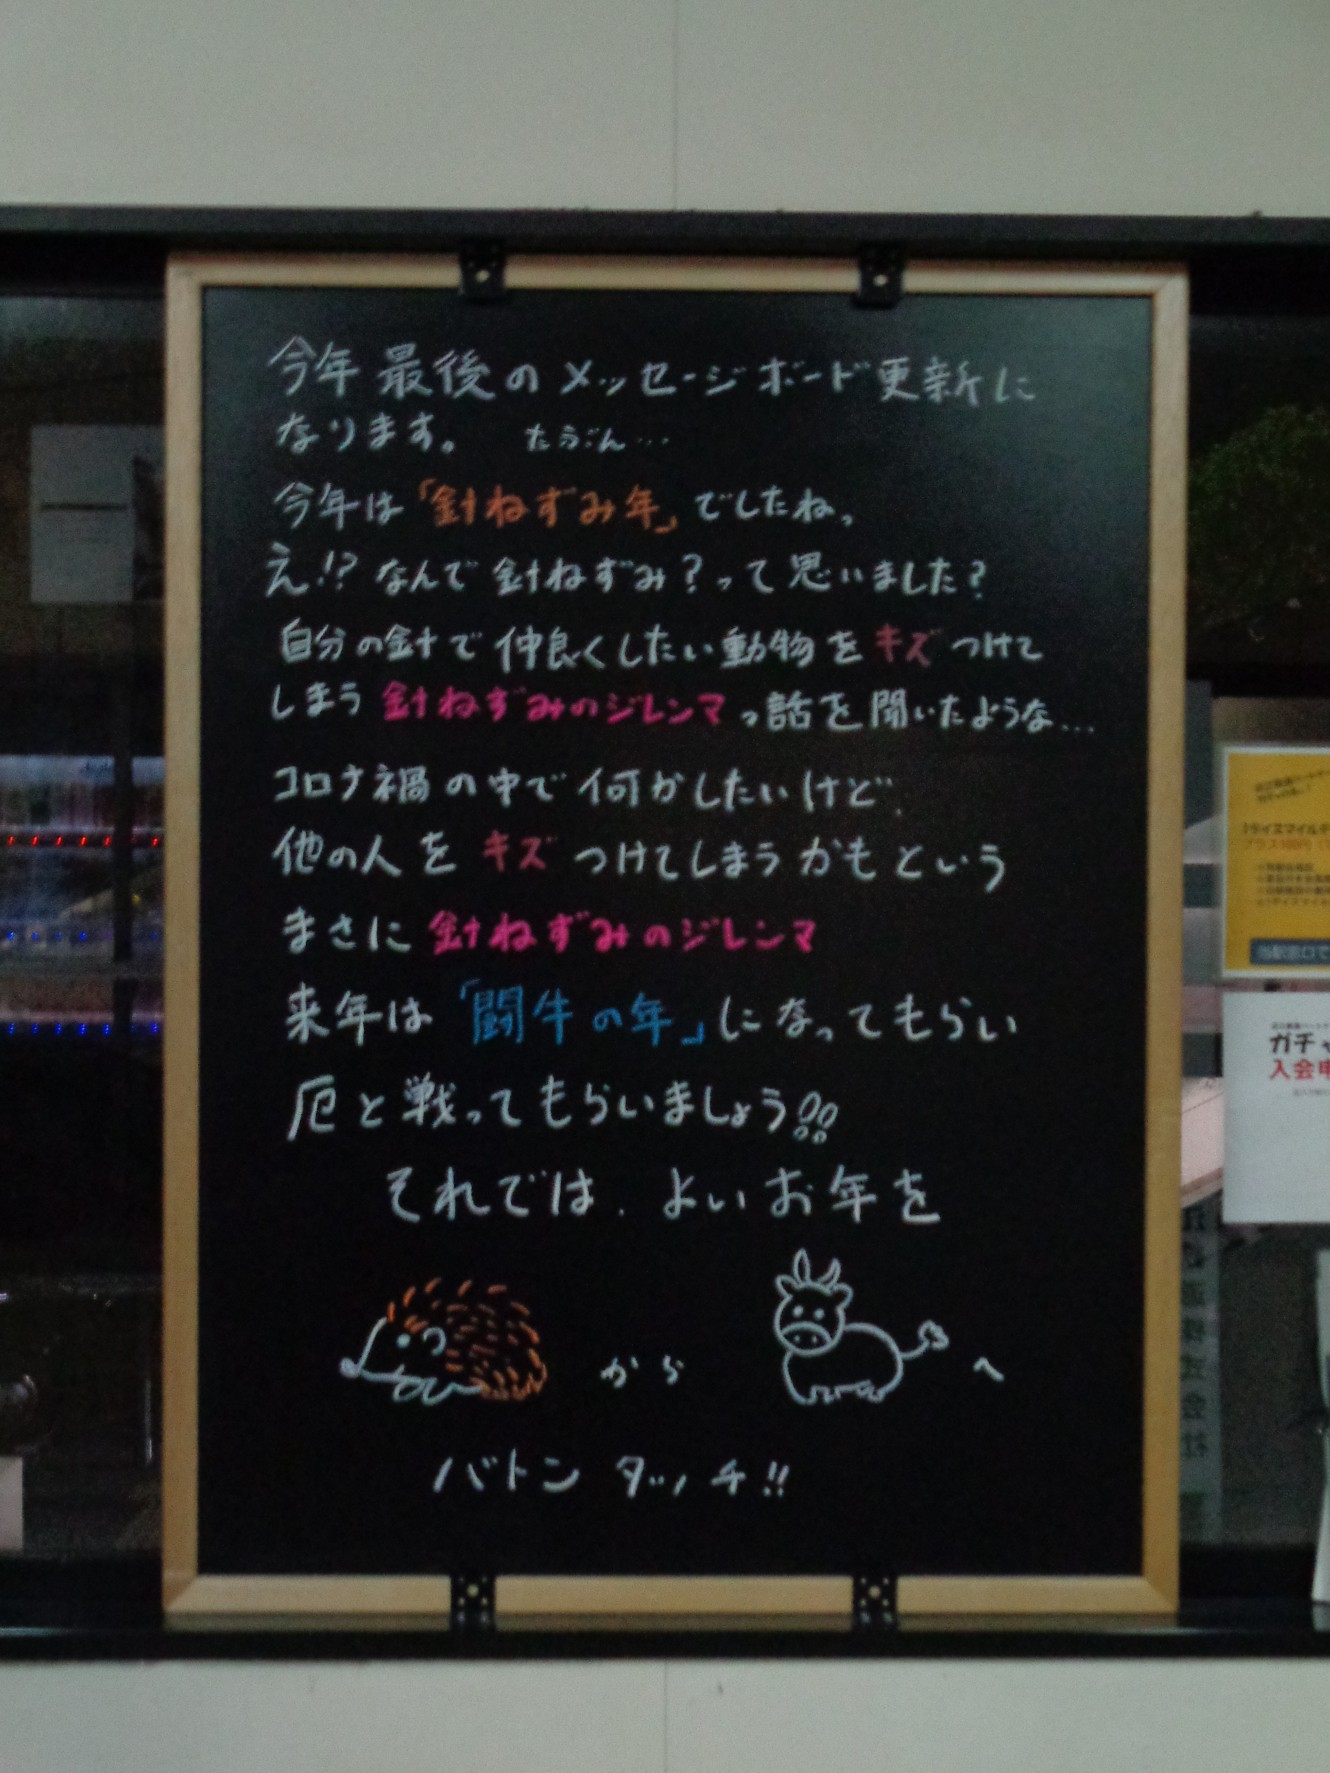 今年最後のメッセージボード更新に
なります。 たぶん…
今年は「針ねずみ年」でしたね。
え!?なんで針ねずみ?って思いました?
自分の針で仲良くしたい動物をキズつけて
しまう針ねずみのジレンマっ話を聞いたような…
コロナ禍の中で何かしたいけど、
他の人をキズつけてしまうかもという
まさに針ねずみのジレンマ
来年は「闘牛の年」になってもらい
厄と戦ってもらいましょう!!
それでは、よいお年を
から へ
バトンタッチ!!
ガチャ
入会申
株式会社